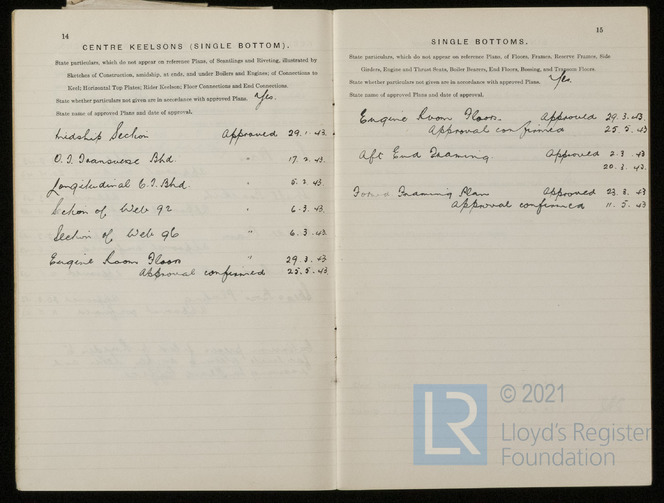 14
CENTRE KEELSONS (SINGLE BOTTOM).
State particulars, which do not appear on reference Plans, of Scantlings and Riveting, illustrated by
Sketches of Construction, amidship, at ends, and under Boilers and Engines; of Connections to
Keel; Horizontal Top Plates; Rider Keelson; Floor Connections and End Connections.
State whether particulars not given are in accordance with approved Plans. Yes.
State name of approved Plans and date of approval.
Midship Section Approved 29.1.43
O.T. Transverse Bhd. " 17.2.43.
Longitudinal O.T. Bhd. " 5.2.43.
Section of Web 92 " 6.3.43.
Section of Web 96 " 6.3.43.
Engine Room Floors " 29.3.43
Approval confirmed 25.5.43
15
SINGLE BOTTOMS.
State particulars, which do not appear on reference Plans, of Floors, Frames, Reverse Frames, Side
Girders, Engine and Thrust Seats, Boiler Bearers, End Floors, Bossing, and Transom Floors
State whether particulars not given are in accordance with approved Plans. Yes.
State name of approved Plans and date of approval.
Engine Room Floors. Approved 29.3.43.
Approval confirmed 25.5.43
Aft End Framing. Approved 2.3.43
20.3.43.
Framing Plan Approved 23.3.43
Approval confirmed 11.5.43
LR
© 2021
Lloyd's Register
Foundation